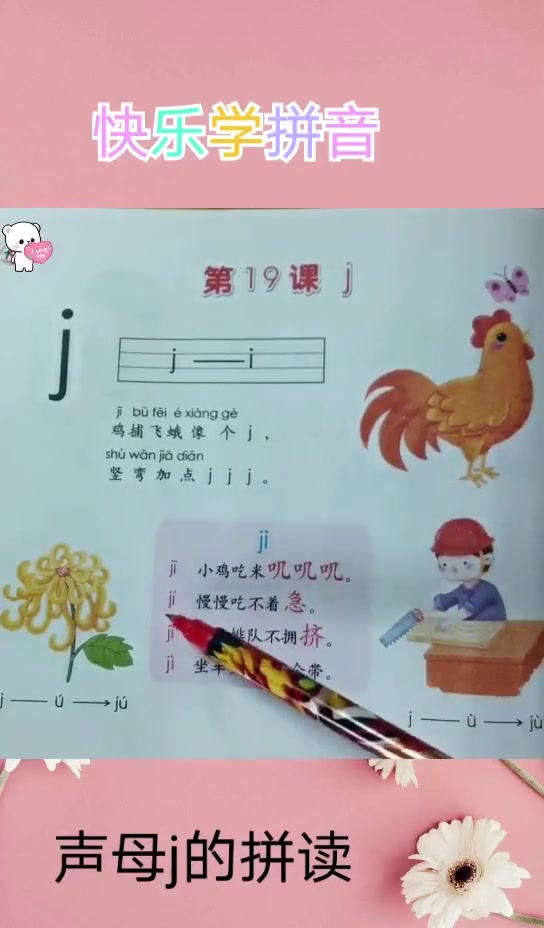 快乐学拼音
第19课 j
j
j — i
jī bǔ fēi é xiàng gè
鸡捕飞蛾像个j，
shù wān jiā diǎn
竖弯加点jjj。
ji
jī 小鸡吃米叽叽叽。
jí 慢慢吃不着急。
排队不拥挤。
jì 坐车
带。
j — ú → jú
j — ù → jù
声母j的拼读